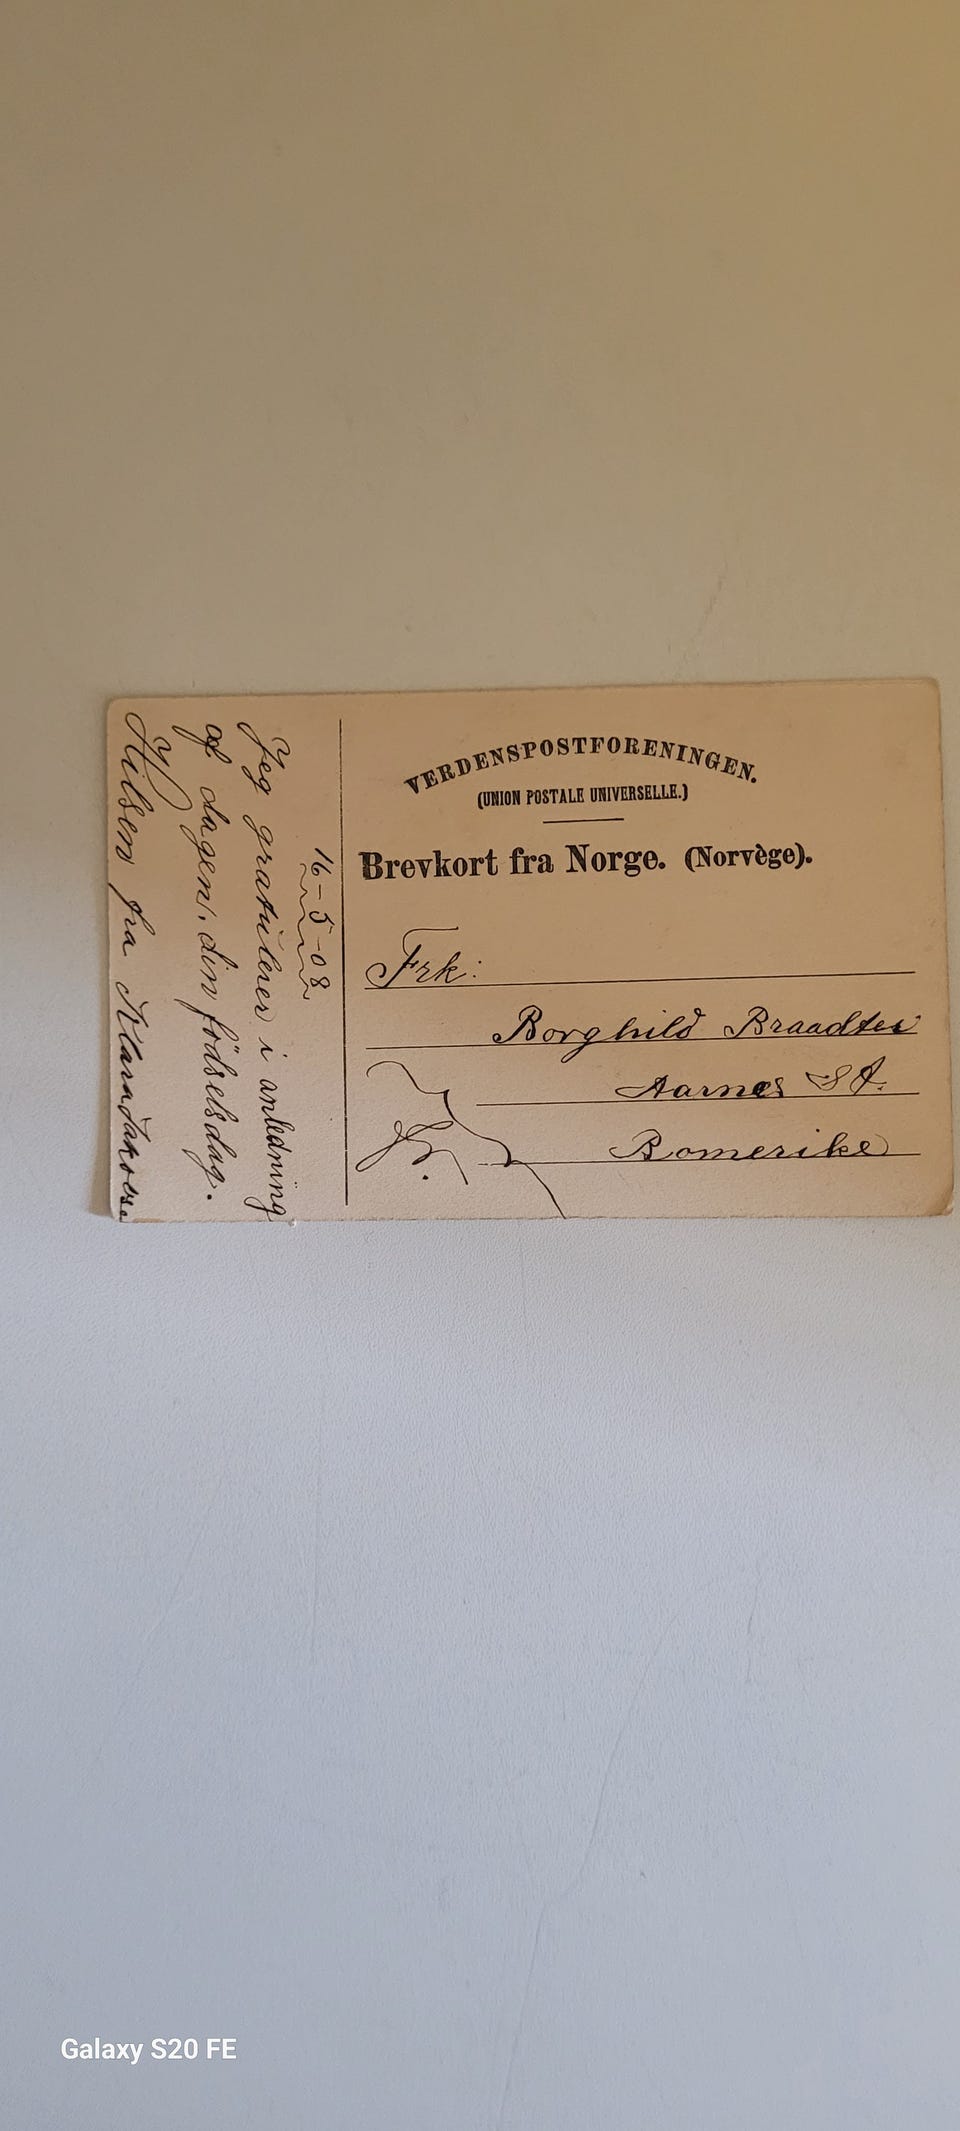 16-5-08
Jeg gratulerer i anledning
af dagen, din födselsdag.
Hilsen fra
VERDENSPOSTFORENINGEN.
(UNION POSTALE UNIVERSELLE.)
Brevkort fra Norge. (Norvège).
Frk:
Borghild Braadten
Aarnes St.
Romerike
Galaxy S20 FE